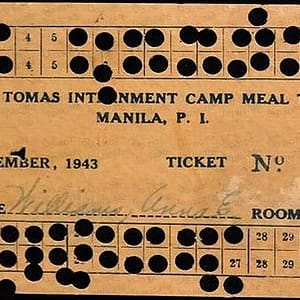 4 5
TOMAS INTERNMENT CAMP MEAL T
MANILA, P. I.
EMBER, 1943 TICKET Nº
E Williams, ROOM
28 29
27 28 29